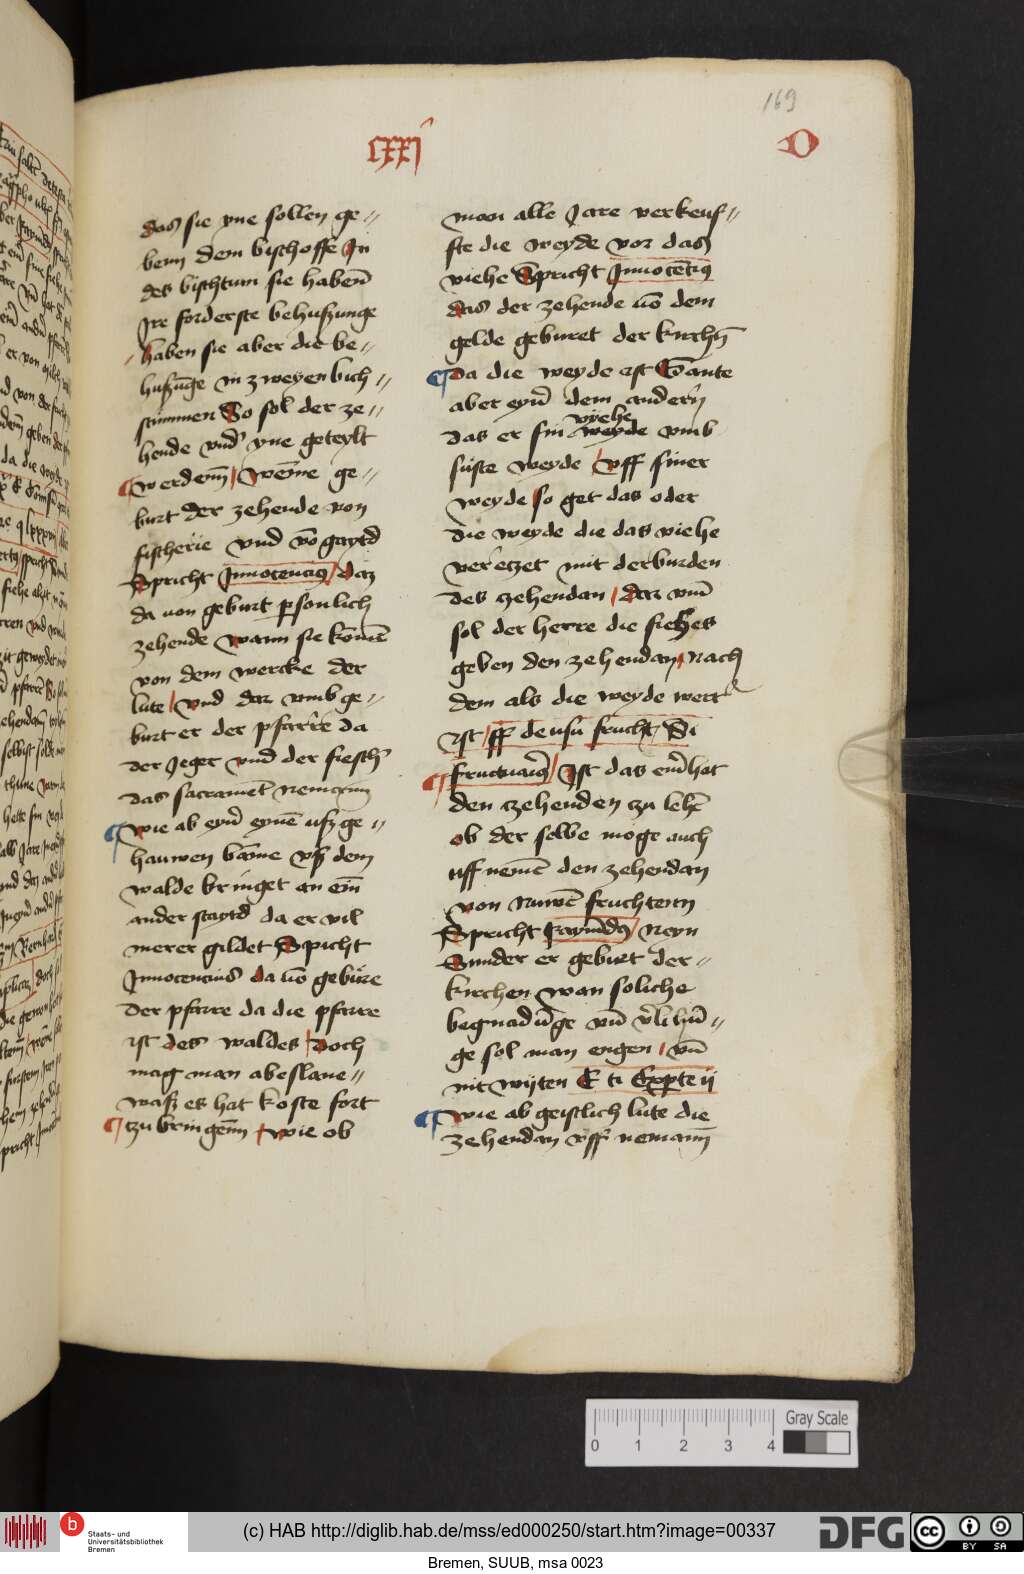 169
cxxi
D
das sie yne sollen ge〃
benn dem bischoffe Jn
des bischtum sie habeñ
Jre forderste behuszunge
haben sie aber die be〃
huszūge in zweyen bich〃
stummen So sol der ze〃
hende vnd' yne geteylt
werdenn̄ / Weme ge〃
burt der zehende von
fischerie vnd vō gaytd
Spricht Jnnocencius / daz
da uon geburt psonlich
zehende wann sie komē
von dem wercke der
lute / vnd dar vmb ge〃
burt er der pfarre da
der Jeger vnd der fiesch'
das sacramēt nemen
wie ab eyn' eynē usz ge〃
hauwen bāme vsz dem
walde bringet an eim̄
ander staytd da er vil
merer gildet Spicht
Jnnocencius da uō gebure
der pfarre da die pfarre
ist des waldes / doch
mag man abeslane〃
wasz es hat koste fort
tzu bringenn wie ob
man alle Jare verkeuf〃
fte die weyde vor das
viehe Spricht Jnnocētius
das der zehende uō dem
gelde geburet der kirchn̄
da die weyde ist Wante
aber eyn' dem andern
vyehe
das er sin weyde vmb
suste weyde / vff siner
weyde so get das oder
die weyde die das viehe
veretzet mit der burden
des czehendan / dar vm̄
sol der herre die siehes
geben den zehendan nach
dem als die weyde wert
ist / ff de usu fruct Si
fructuariꝯ / Jst das emd hat
den czehenden czu lehē
ob der selbe moge auch
uff nemē den zehendan
von nuwē fruchtenn
Spricht Raymūdꝯ / Neyn
Sunder er geburt der〃
kirchen wan soliche
begnadūge vn̄ v'lihū〃
ge sol man engen / vn̄
nit wijten E ti Expte ij
wie ab geistlich lute die
zehendan vff nemann̄
Gray Scale
0 1 2 3 4
Staats- und
Universitätsbibliothek
Bremen
(c) HAB http://diglib.hab.de/mss/ed000250/start.htm?image=00337
DFG
cc BY SA
Bremen, SUUB, msa 0023